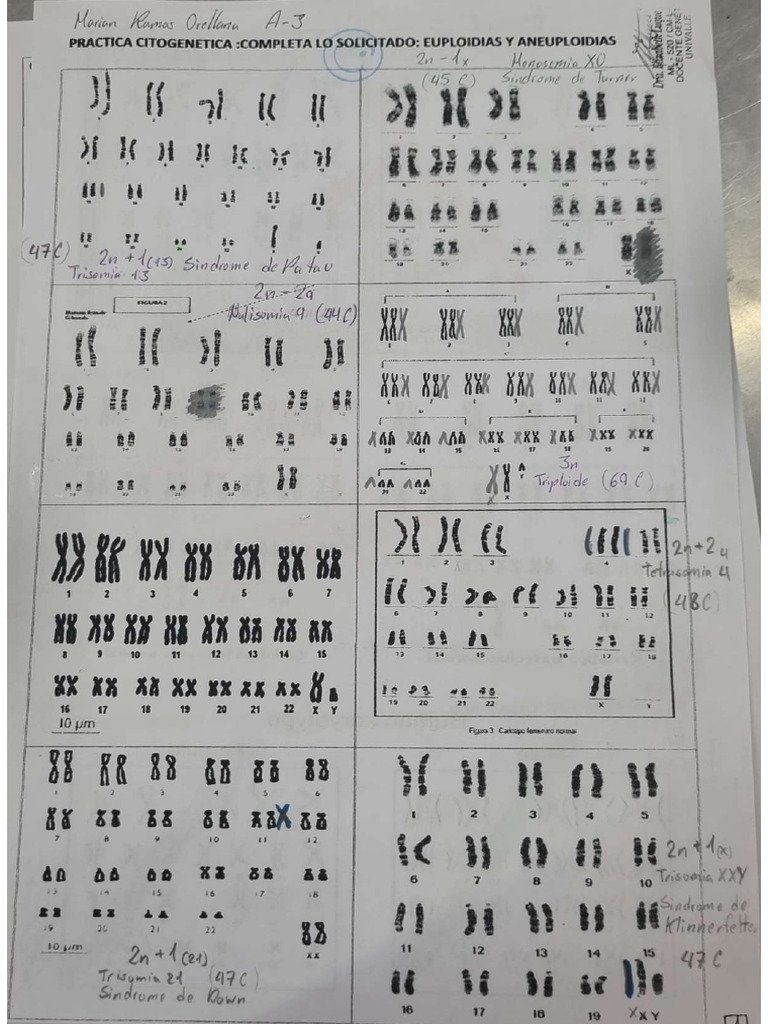 Marian Ramos Orellana A-3
PRACTICA CITOGENETICA :COMPLETA LO SOLICITADO: EUPLOIDIAS Y ANEUPLOIDIAS
ML - 520 / CM-L
DOCENTE GENET
UNIVALLE
2n-1x Monosomia XO
(45 C) Sindrome de Turner
(47C) 2n + 1(13). Sindrome de Patau
Trisomia 13
1 2 3 4 5
6 7 8 9 10 11 12
13 14 15 16 17 18
19 20 21 22 X
FIGURA 2
2n - 2a
Nulisomia 9 (44C)
1 2 3 4 5
13 14 15 16 17 18 19 20
21 22 X
3n
Triploide (69 C)
1 2 3 4 5 6 7
8 9 10 11 12 13 14 15
16 17 18 19 20 21 22 X Y
10 µm
1 2 3 4
6 7 8 9 10 11 12
13 14 15 16 17 18
19 20 21 22 X Y
2n+2 4
Tetrasomia 4
(48C)
Figura 3. Cariotipo femenino normal
1 2 3 4 5 6
7 8 9 10 11 12
13 14 15 16 17 18
19 20 21 22 XX
10 µm
2n + 1 (21)
Trisomia 21 (47C)
Sindrome de Down
1 2 3 4 5
6 7 8 9 10
11 12 13 14 15
16 17 18 19 X X Y
2n + 1(x)
Trisomia XXY
Sindrome de
Klinnerfelter
47C